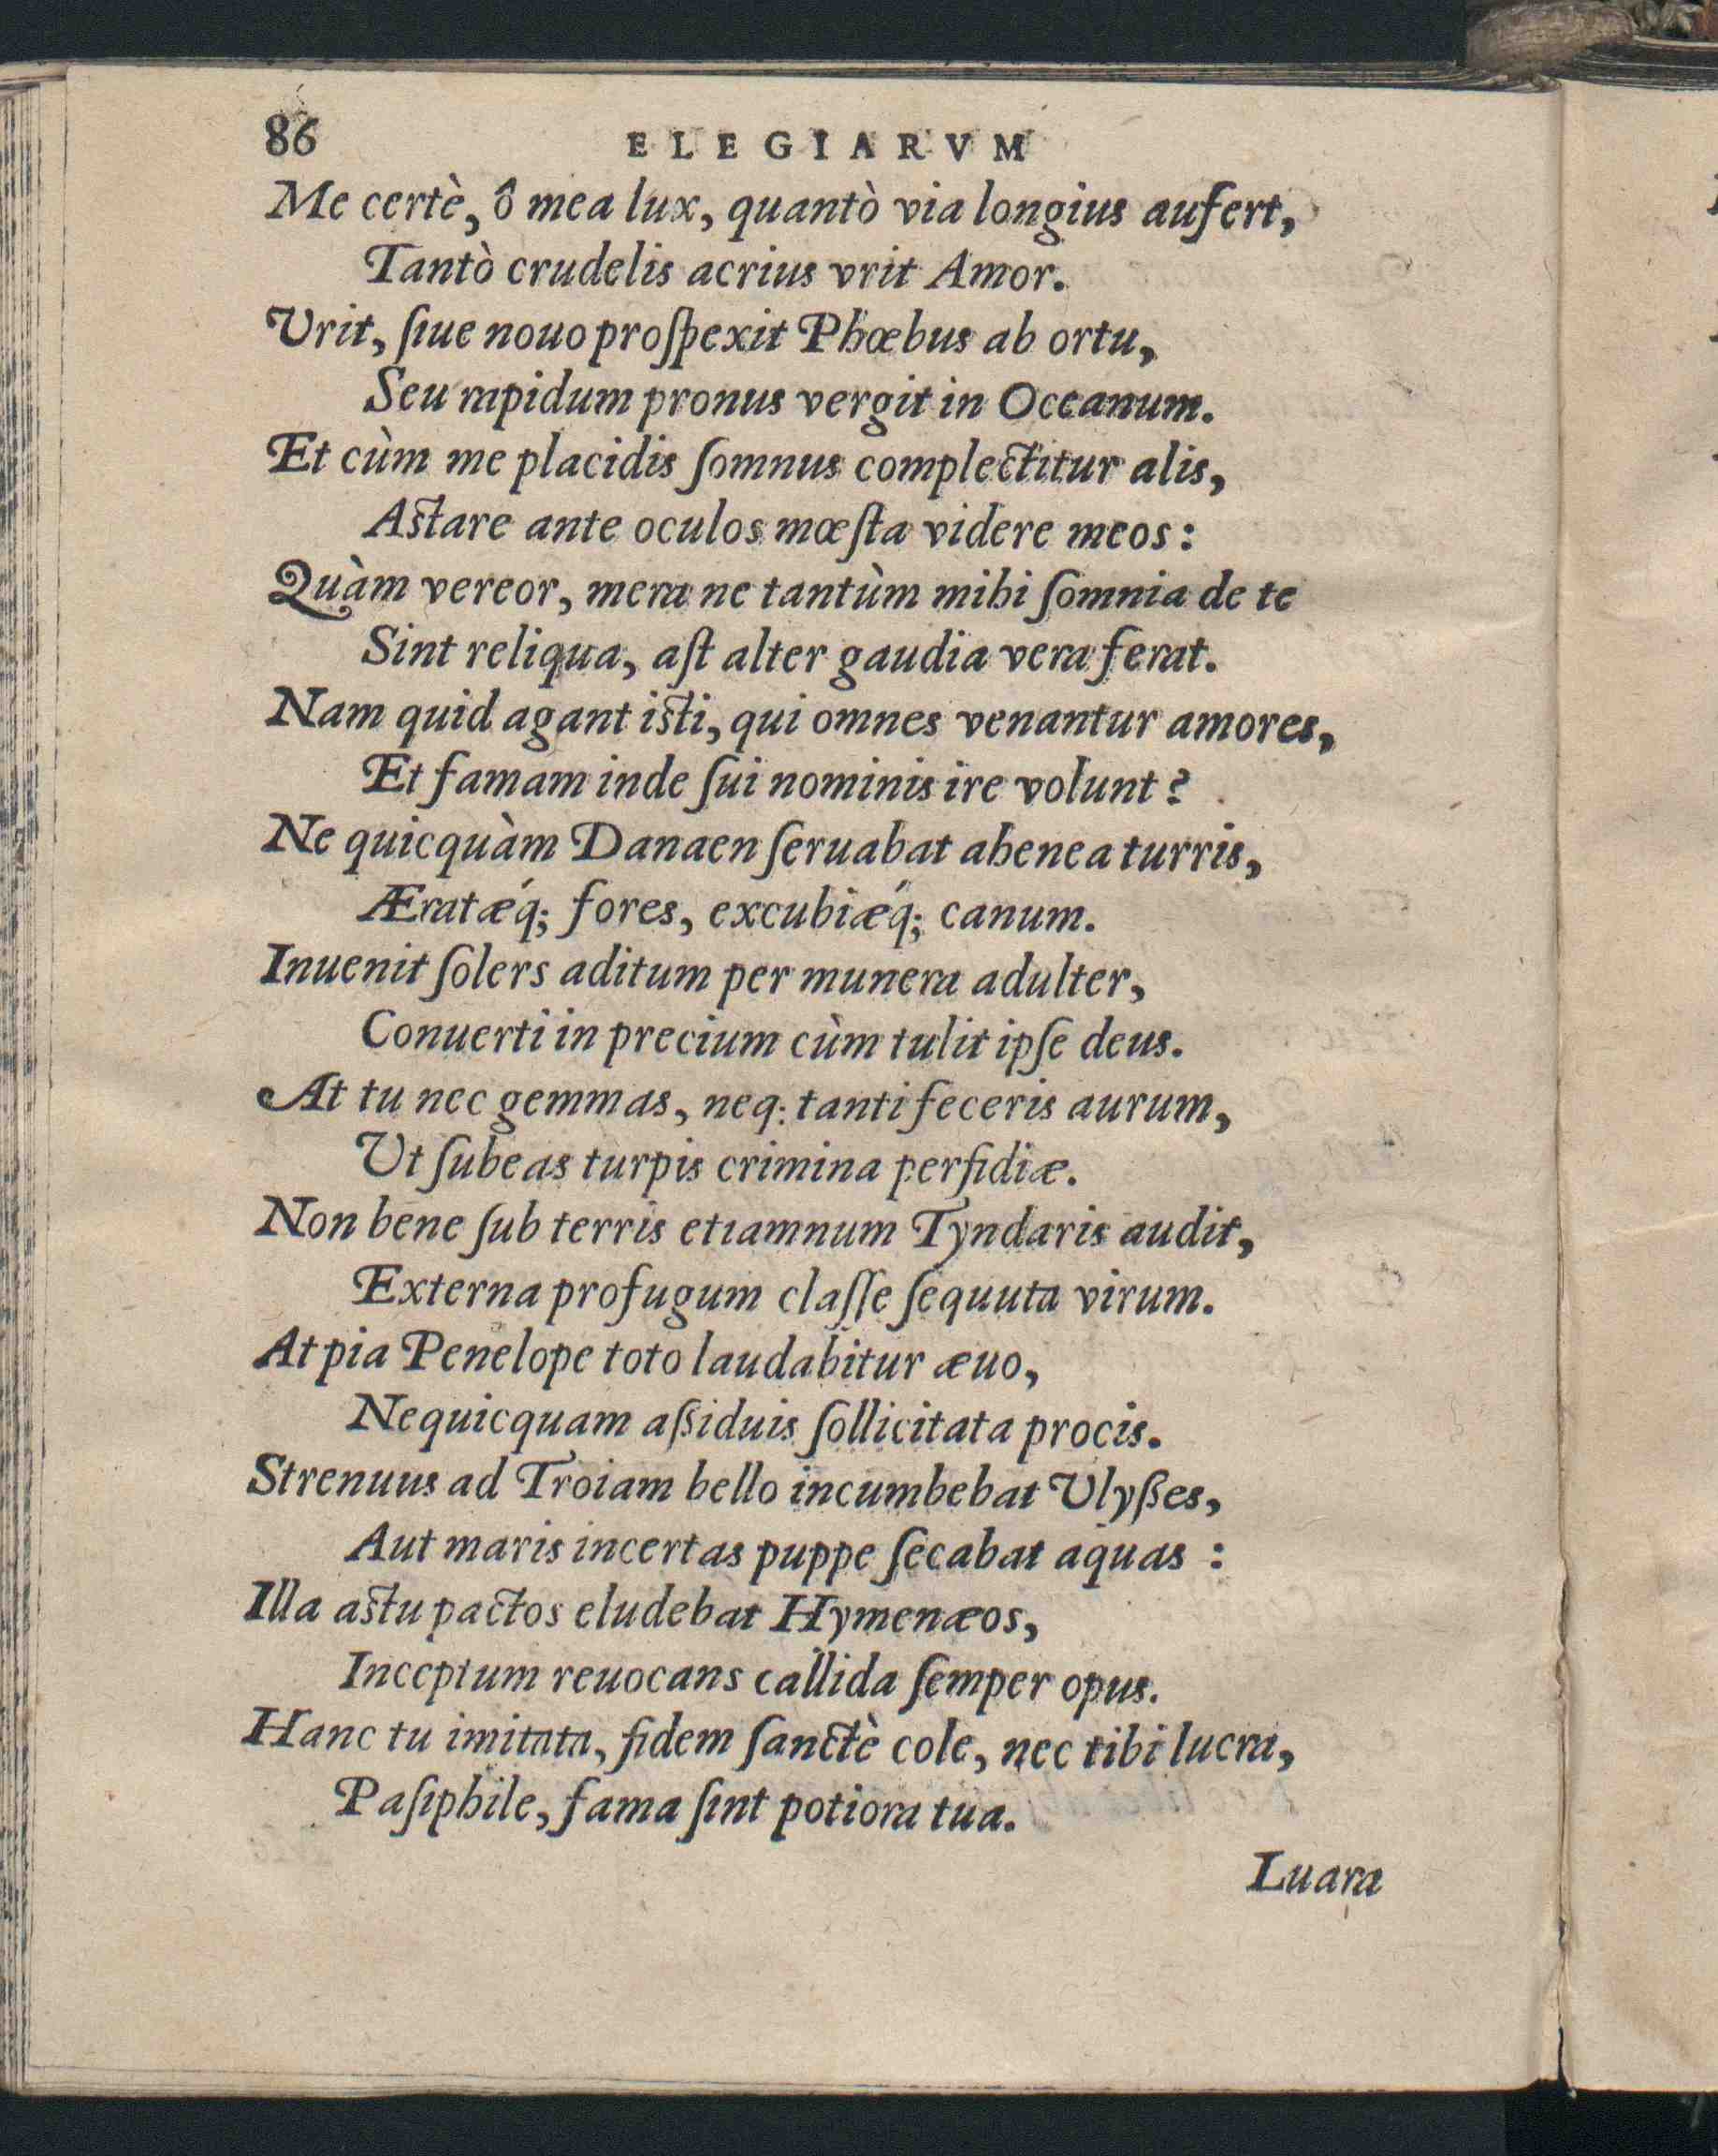 86 ELEGIARVM
Me certè, ô mea lux, quantò via longius aufert,
Tantò crudelis acrius vrit Amor.
Vrit, ſiue nouo proſpexit Phœbus ab ortu,
Seu rapidum pronus vergit in Oceanum.
Et cùm me placidis ſomnus complectitur alis,
Aſtare ante oculos mœſta videre meos:
Quàm vereor, mera ne tantùm mihi ſomnia de te
Sint reliqua, aſt alter gaudia vera ferat.
Nam quid agant iſti, qui omnes venantur amores,
Et famam inde ſui nominis ire volunt?
Ne quicquàm Danaen ſeruabat ahenea turris,
Æratæq́; fores, excubiæq́; canum.
Inuenit ſolers aditum per munera adulter,
Conuerti in precium cùm tulit ipſe deus.
At tu nec gemmas, neq; tanti feceris aurum,
Vt ſubeas turpis crimina perfidiæ.
Non bene ſub terris etiamnum Tyndaris audit,
Externa profugum claſſe ſequuta virum.
At pia Penelope toto laudabitur æuo,
Nequicquam aßiduis ſollicitata procis.
Strenuus ad Troiam bello incumbebat Vlyßes,
Aut maris incertas puppe ſecabat aquas:
Illa aſtu pactos eludebat Hymenæos,
Inceptum reuocans callida ſemper opus.
Hanc tu imitata, fidem ſanctè cole, nec tibi lucra,
Paſiphile, fama ſint potiora tua.
Luara